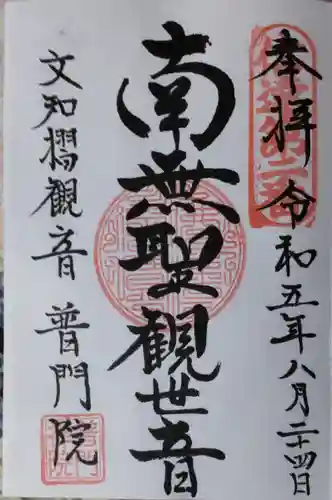 奉拝
令和五年八月二十四日
南無聖観世音
文知摺観音 普門院